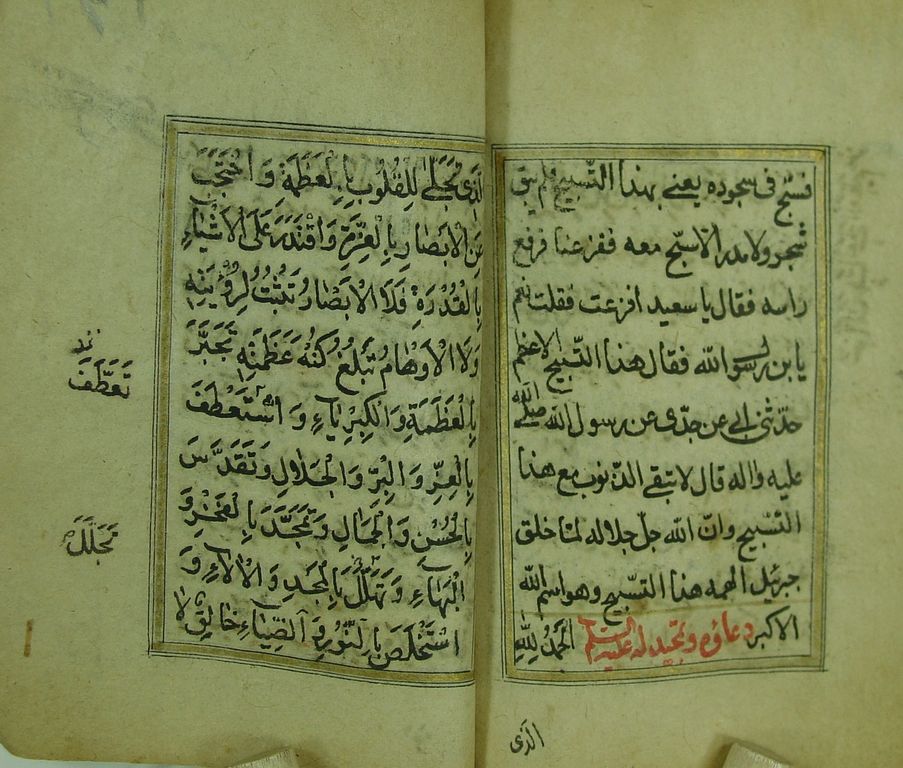 فسبّح فى سجوده يعنے بهذا التّسبيح فلم يبق
شجر ولا مدر الّا سبّح معه ففزعنا فرفع
راسه فقال يا سعيد افزعت فقلت نعم
يا بن رسول الله فقال هذا التّسبيح الاعظم
حدّثنى ابى عن جدّى عن رسول الله صلّى الله
عليه واله قال لا تبقى الذّنوب مع هذا
التسّبيح وانّ الله جلّ جلاله لمّا خلق
جبرئيل الهمه هذا التسّبيح وهو اسم الله
الاكبر دعاؤه وتمجيد له عليه السلام اَلحَمدُ لِلّهِ
الّذى
الَّذِى تَجَلّٰى لِلقُلُوبِ بِالْعَظَمَةِ وَاحْتَجَبَ
عَنِ الْاَبْصٰارِ بِالْعِزَّةِ وَاقْتَدَرَ عَلَى الْاَشْيٰاءِ
بِالْقُدْرَةِ فَلَا الْاَبْصٰارُ تَثْبُتُ لِرُؤْيَتِهِ
وَلَا الْاَوْهٰامُ تَبْلُغُ كُنْهَ عَظَمَتِهِ تَجَبَّرَ
بِالْعَظَمَةِ وَالْكِبْرِيٰاءِ وَاسْتَعْطَفَ
تَعَطَّفَ
بِالْعِزِّ وَالْبِرِّ وَالْجَلَالِ وَتَقَدَّسَ
بِالْحُسْنِ وَالْجَمٰالِ وَتَمَجَّدَ بِالْفَخْرِ وَ
تَجَلَّلَ
الْبَهٰاءِ وَتَهَلَّلَ بِالْمَجْدِ وَالْاٰلآءِ وَ
اسْتَخْلَصَ بِالنُّورِ وَالضِّيٰاءِ خٰالِقٌ لٰا